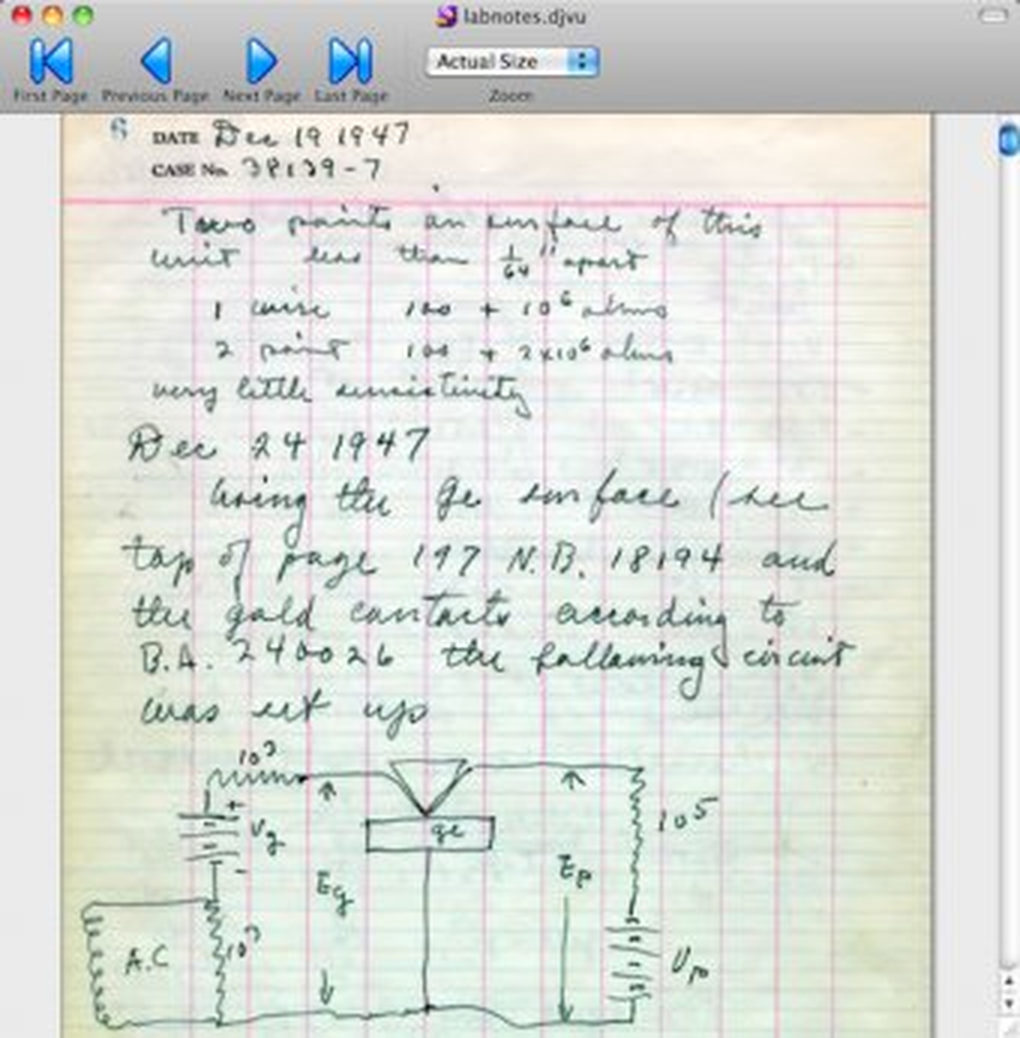 labnotes.djvu
Actual Size
First Page Previous Page Next Page Last Page Zoom
6 DATE Dec 19 1947
CASE No. 38139-7
Two points on surface of this
unit less than 1/64" apart
1 wire 100 + 10⁶ ohms
2 point 100 + 2x10⁶ ohms
very little sensistivity
Dec 24 1947
Using the Ge surface (see
top of page 197 N.B. 18194 and
the gold contacts according to
B.A. 240026 the following circuit
was set up
10³
+
Vg
ge
10⁵
-
Eg
Ep
A.C
10³
Vp